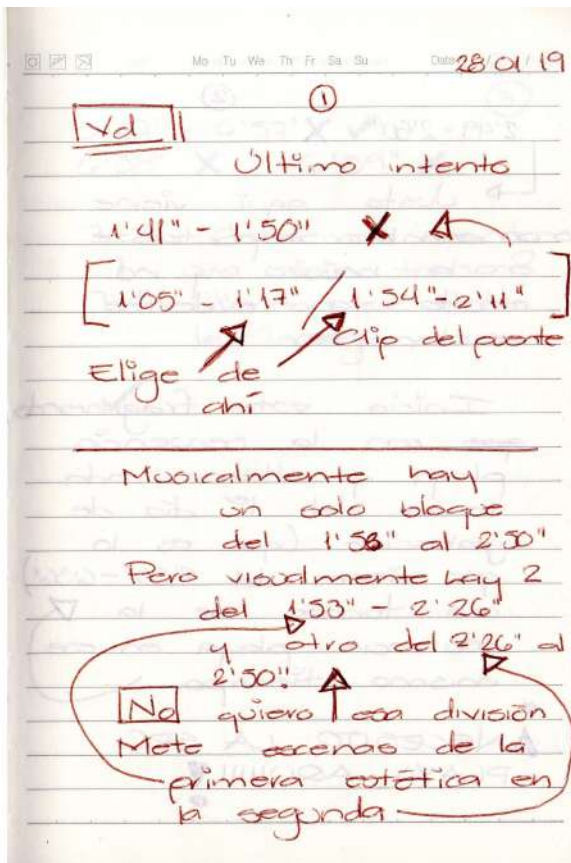 Mo Tu We Th Fr Sa Su Date 28/01/19
①
Vd
Último intento
1'41" - 1'50" X
[1'05" - 1'17" / 1'54" - 2'11"]
Clip del puente
Elige de
ahí
Musicalmente hay
un solo bloque
del 1'53" al 2'50"
Pero visualmente hay 2
del 1'53" - 2'26"
y otro del 2'26" al
2'50"!
No quiero esa división
Mete escenas de la
primera estética en
la segunda